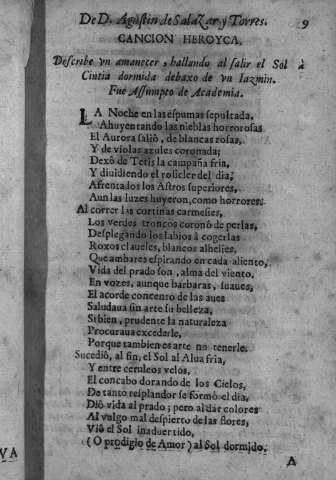 De D. Agostin de Salazar y Torres. 9
CANCION HEROYCA.
Describe vn amanecer, hallando al salir el Sol à
Cintia dormida debaxo de vn Iazmin.
Fue Assumpto de Academia.
LA Noche en las espumas sepultada,
Ahuyentando las nieblas horrorosas
El Aurora saliò, de blancas rosas,
Y de violas azules coronada;
Dexò de Tetis la campaña fria,
Y diuidiendo el rosicler del dia,
Afrentados los Astros superiores,
Aun las luzes huyeron, como horrores.
Al correr las cortinas carmesies,
Los verdes troncos coronò de perlas,
Desplegando los labios à cogerlas
Roxos claueles, blancos alhelies,
Que ambares espirando en cada aliento,
Vida del prado son, alma del viento.
En vozes, aunque barbaras, suaues,
El acorde concento de las aues
Saludaua sin arte su belleza,
Si bien, prudente la naturaleza
Procuraua excederle,
Porque tambien es arte no tenerle.
Sucediò, al fin, el Sol al Alua fria,
Y entre ceruleos velos,
El concabo dorando de los Cielos,
De tanto resplandor se formò el dia,
Diò vida al prado; pero al dar colores
Al vulgo mal despierto de las flores,
Viò el Sol inaduertido,
(O prodigio de Amor) al Sol dormido.
A
VA